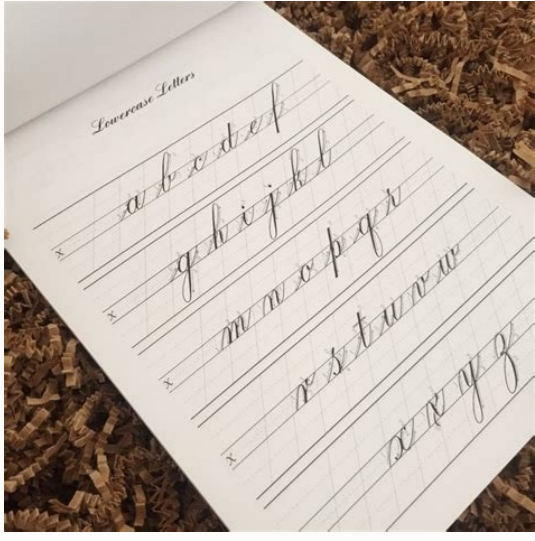 Lowercase Letters
x a b c d e f
x g h i j k l
x m n o p q r
x r s t u v w
x x y z